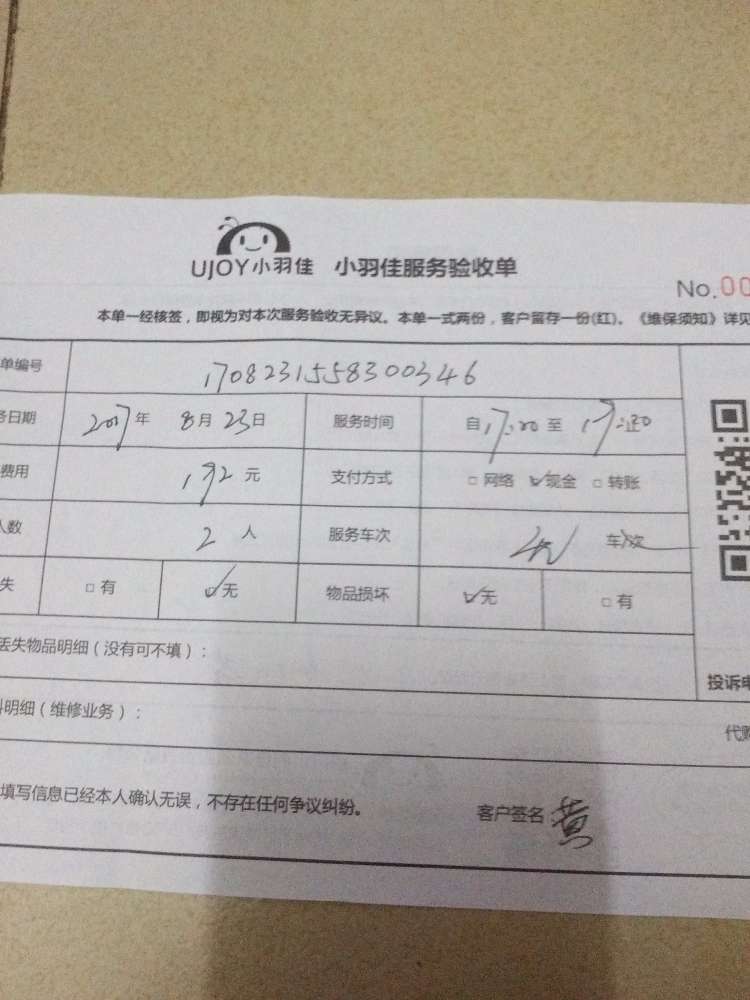 UJOY小羽佳 小羽佳服务验收单
No.00
本单一经核签，即视为对本次服务验收无异议。本单一式两份，客户留存一份(红)。《维保须知》详见
单编号 170823155830034​6
务日期 2017年 8月 23日 服务时间 自17:00至
费用 192元 支付方式 □网络 ☑现金 □转账
人数 2人 服务车次 车次
失 □有 ☑无 物品损坏 ☑无 □有
丢失物品明细（没有可不填）：
投诉电
料明细（维修业务）：
代购
填写信息已经本人确认无误，不存在任何争议纠纷。
客户签名 黄